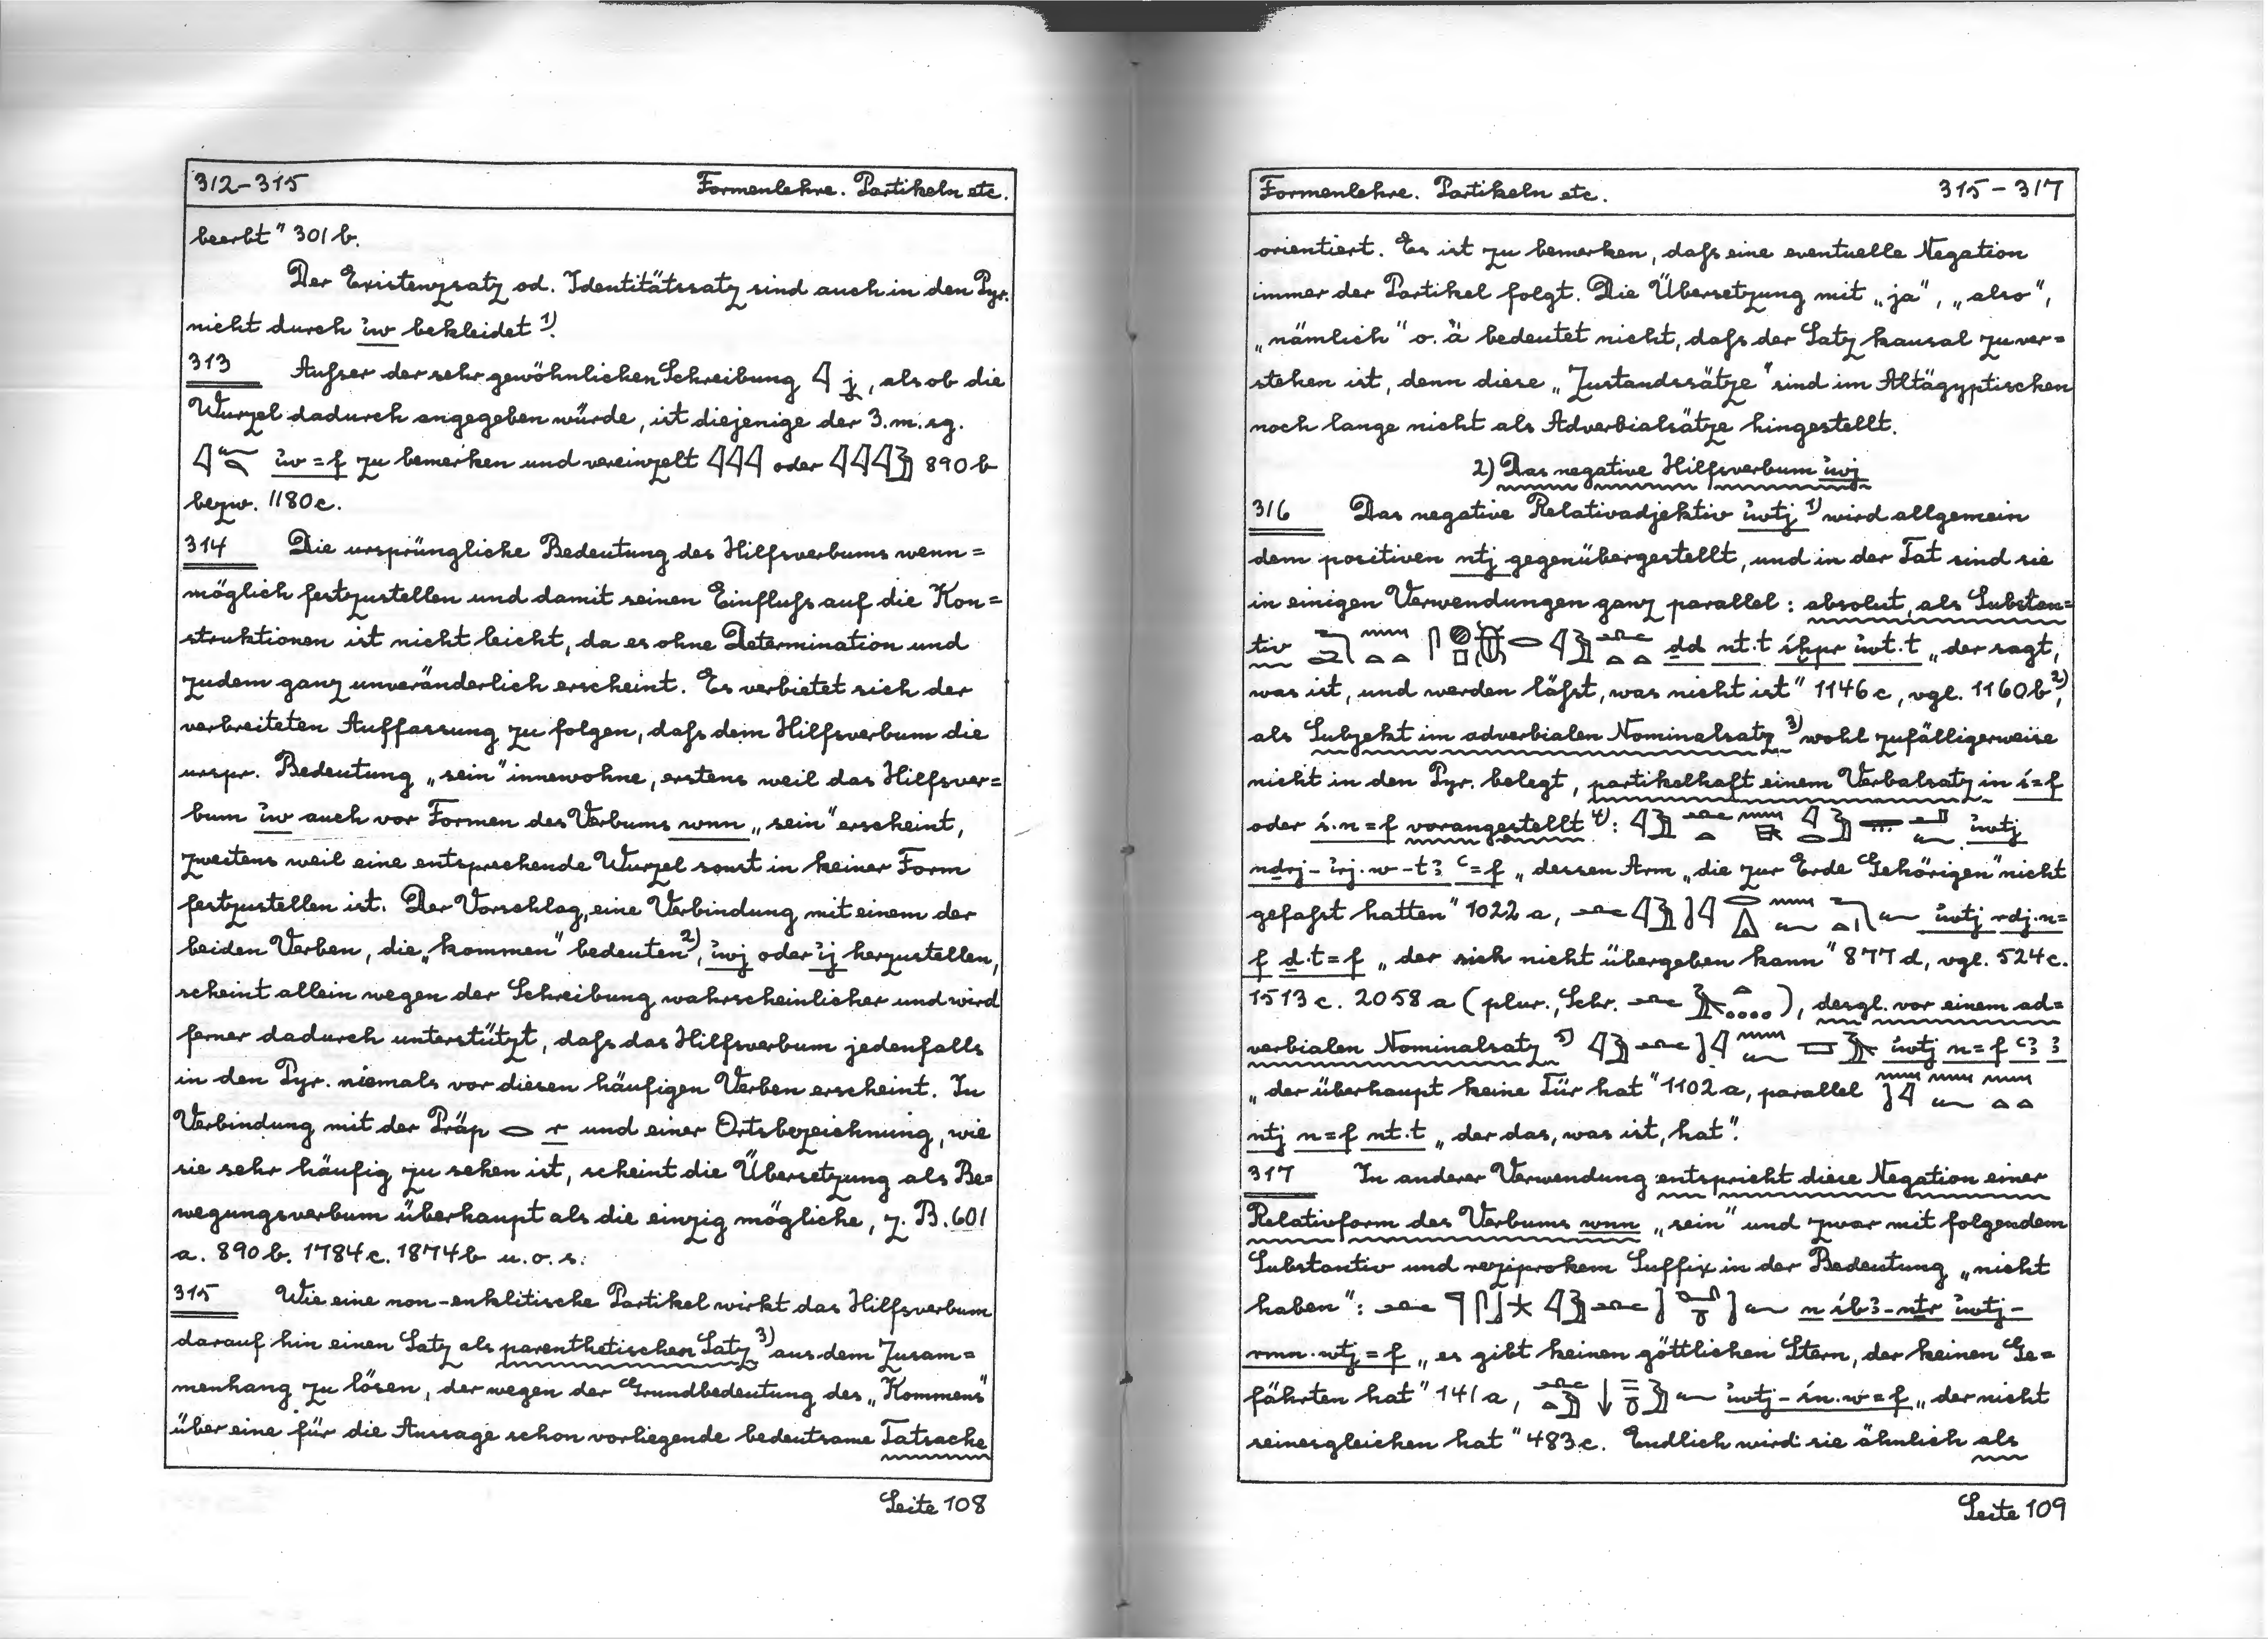 312–315 Formenlehre. Partikeln etc.
beerbt" 301 b.
Der Existenzsatz od. Identitätssatz sind auch in den Pyr.
nicht durch ỉw bekleidet 1).
313 Außer der sehr gewöhnlichen Schreibung 𓇋 j, als ob die
Wurzel dadurch angegeben würde, ist diejenige der 3. m. sg.
ỉw=f zu bemerken und vereinzelt 𓇋𓇋𓇋 oder 𓇋𓇋𓇋𓅱 890 b
bezw. 1180 c.
314 Die ursprüngliche Bedeutung des Hilfsverbums wenn=
möglich festzustellen und damit seinen Einfluß auf die Kon=
struktionen ist nicht leicht, da es ohne Determination und
zudem ganz unveränderlich erscheint. Es verbietet sich der
verbreiteten Auffassung zu folgen, daß dem Hilfsverbum die
urspr. Bedeutung „sein" innewohne, erstens weil das Hilfsver=
bum ỉw auch vor Formen des Verbums wnn „sein" erscheint,
zweitens weil eine entsprechende Wurzel sonst in keiner Form
festzustellen ist. Der Vorschlag, eine Verbindung mit einem der
beiden Verben, die „kommen" bedeuten 2), ỉwj oder ỉj herzustellen,
scheint allein wegen der Schreibung wahrscheinlicher und wird
ferner dadurch unterstützt, daß das Hilfsverbum jedenfalls
in den Pyr. niemals vor diesen häufigen Verben erscheint. In
Verbindung mit der Präp 𓂋 r und einer Ortsbezeichnung, wie
sie sehr häufig zu sehen ist, scheint die Übersetzung als Be=
wegungsverbum überhaupt als die einzig mögliche, z. B. 601
a. 890 b. 1784 c. 1874 b u. o. s.
315 Wie eine non-enklitische Partikel wirkt das Hilfsverbum
darauf hin einen Satz als parenthetischen Satz 3) aus dem Zusam=
menhang zu lösen, der wegen der Grundbedeutung des „Kommens"
über eine für die Aussage schon vorliegende bedeutsame Tatsache
Seite 108
Formenlehre. Partikeln etc. 315–317
orientiert. Es ist zu bemerken, daß eine eventuelle Negation
immer der Partikel folgt. Die Übersetzung mit „ja", „also",
„nämlich" o. ä bedeutet nicht, daß der Satz kausal zu ver=
stehen ist, denn diese „Zustandssätze" sind im Altägyptischen
noch lange nicht als Adverbialsätze hingestellt.
2) Das negative Hilfsverbum ỉwj
316 Das negative Relativadjektiv ỉwtj 1) wird allgemein
dem positiven ntj gegenübergestellt, und in der Tat sind sie
in einigen Verwendungen ganz parallel: absolut, als Substan=
tiv ḏd nt.t śḫpr ỉwt.t „der sagt,
was ist, und werden läßt, was nicht ist" 1146 c, vgl. 1160 b 2),
als Subjekt im adverbialen Nominalsatz 3) wohl zufälligerweise
nicht in den Pyr. belegt, partikelhaft einem Verbalsatz in ś=f
oder ś.n=f vorangestellt 4): ỉwtj
nḏrj-ỉrj.w-tꜣ ꜥ=f „dessen Arm „die zur Erde Gehörigen" nicht
gefaßt hatten" 1022 a, ỉwtj rdj.n=
f ḏ.t=f „der sich nicht übergeben kann" 877 d, vgl. 524 c.
1513 c. 2058 a (plur., Schr. ), desgl. vor einem ad=
verbialen Nominalsatz 5) ỉwtj n=f ꜥꜣ
„der überhaupt keine Tür hat" 1102 a, parallel
ntj n=f nt.t „der das, was ist, hat".
317 In anderer Verwendung entspricht diese Negation einer
Relativform des Verbums wnn „sein" und zwar mit folgendem
Substantiv und reziprokem Suffix in der Bedeutung „nicht
haben": n śbꜣ-nṯr ỉwtj-
rmn.wtj=f „es gibt keinen göttlichen Stern, der keinen Ge=
fährten hat" 141 a, ỉwtj-śn.w=f „der nicht
seinesgleichen hat" 483 c. Endlich wird sie ähnlich als
Seite 109